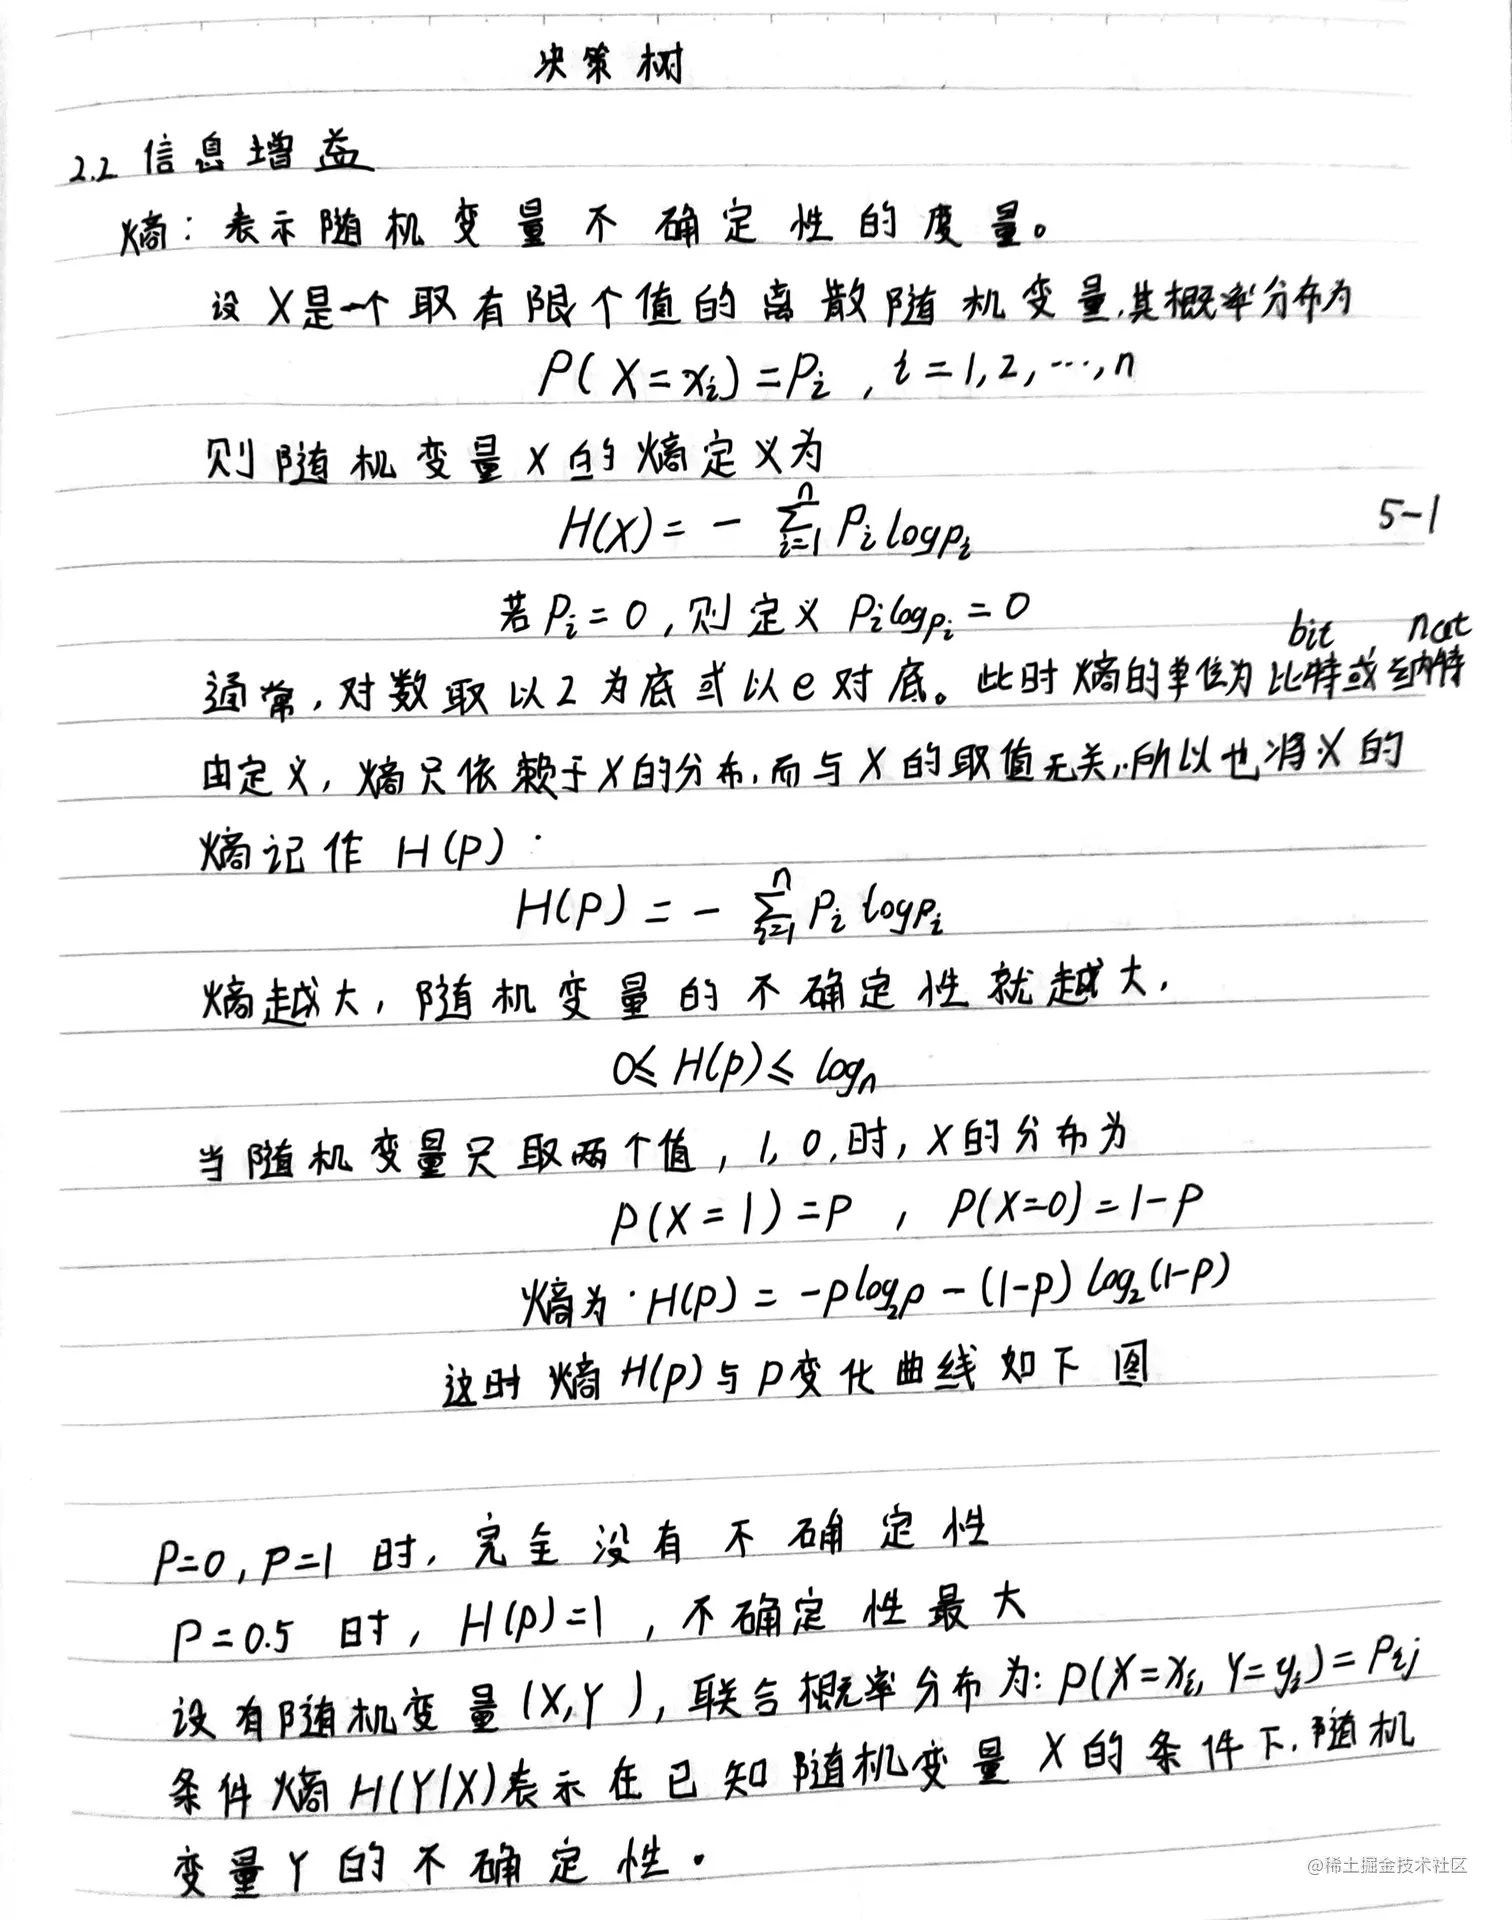 决策树
2.2 信息增益
熵：表示随机变量不确定性的度量。
设X是一个取有限个值的离散随机变量,其概率分布为
P(X=xᵢ)=Pᵢ , i=1,2,⋯,n
则随机变量X的熵定义为
H(X)= - ∑ⁿᵢ₌₁ Pᵢ logpᵢ 5-1
若Pᵢ=0,则定义 Pᵢlogpᵢ=0
bit nat
通常,对数取以2为底或以e对底。此时熵的单位为比特或纳特
由定义,熵只依赖于X的分布,而与X的取值无关,所以也将X的
熵记作 H(P)
H(P)= - ∑ⁿᵢ₌₁ Pᵢ logpᵢ
熵越大,随机变量的不确定性就越大,
0≤H(p)≤logn
当随机变量只取两个值,1,0,时,X的分布为
P(X=1)=P , P(X=0)=1-P
熵为·H(p)=-plog₂p-(1-p)log₂(1-p)
这时熵H(p)与P变化曲线如下图
P=0,P=1时,完全没有不确定性
P=0.5时,H(p)=1,不确定性最大
设有随机变量(X,Y),联合概率分布为:P(X=xᵢ,Y=yᵢ)=Pᵢⱼ
条件熵H(Y|X)表示在已知随机变量X的条件下,随机
变量Y的不确定性.
@稀土掘金技术社区